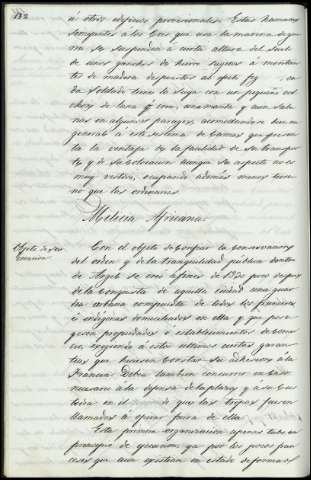 132
á otros edificios provisionales. Estas hamacas
semejantes á los cois que usa la marina de guer
ra se suspenden á cierta altura del suelo
de unos ganchos de hierro sugetos á montan
tes de madera dispuestos al efecto
da soldado tiene la suya con un pequeño col
chon de lana y crin, una manta y aun saba
nas en algunos parages, acomodandose bien en
general á este sistema de camas que presen
ta la ventaja de la facilidad de su transpor
te y de su colocacion aunque su aspecto no es
muy vistoso, ocupando ademas menos terre
no que las ordinarias
Milicia Africana.
Objeto de su
creacion
Con el objeto de confiar la conservacion
del orden y de la tranquilidad pública dentro
de Argel se creó á fines de 1830 poco despues
de la conquista de aquella ciudad una guar
dia urbana compuesta de todos los franceses
é indigenas domiciliados en ella y que pose
yesen propiedades ó establecimientos de comer
cio, exigiendo á estos ultimos ciertas garan
tias que hicieran constar su adhesion á la
Francia. Debia tambien concurrir en caso
necesario á la defensa de la plaza y á su cus
todia en el de que las tropas fuesen
llamadas á operar fuera de ella.
Esta primera organizacion apenas tubo un
principio de egecucion ya por los pocos fran
ceses que aun existian en estado de formar